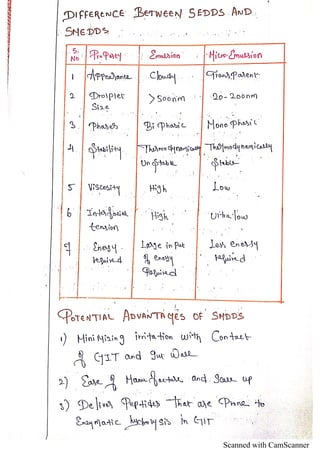 DIFFERENCE BETWEEN SEDDS AND
SMEDDS
S. No Property Emulsion Micro-Emulsion
1 Appearance Cloudy Transparent
2 Droplet Size >500nm 20-200nm
3. Phases Bi Phasic Mono Phasic
4 Stability Thermodynamically Un Stable Thermodynamically Stable
5 Viscosity High Low
6 Interfacial tension High Ultra low
7 Energy required Large in Put of energy Required Low energy required
POTENTIAL ADVANTAGES OF SMDDS
1) Minimizing irritation with Contact
of GIT and gut Wall
2) Ease of Manufacture and Scale up
3) Delivers Peptides That are Prone to
Enzymatic hydrolysis in GIT
Scanned with CamScanner